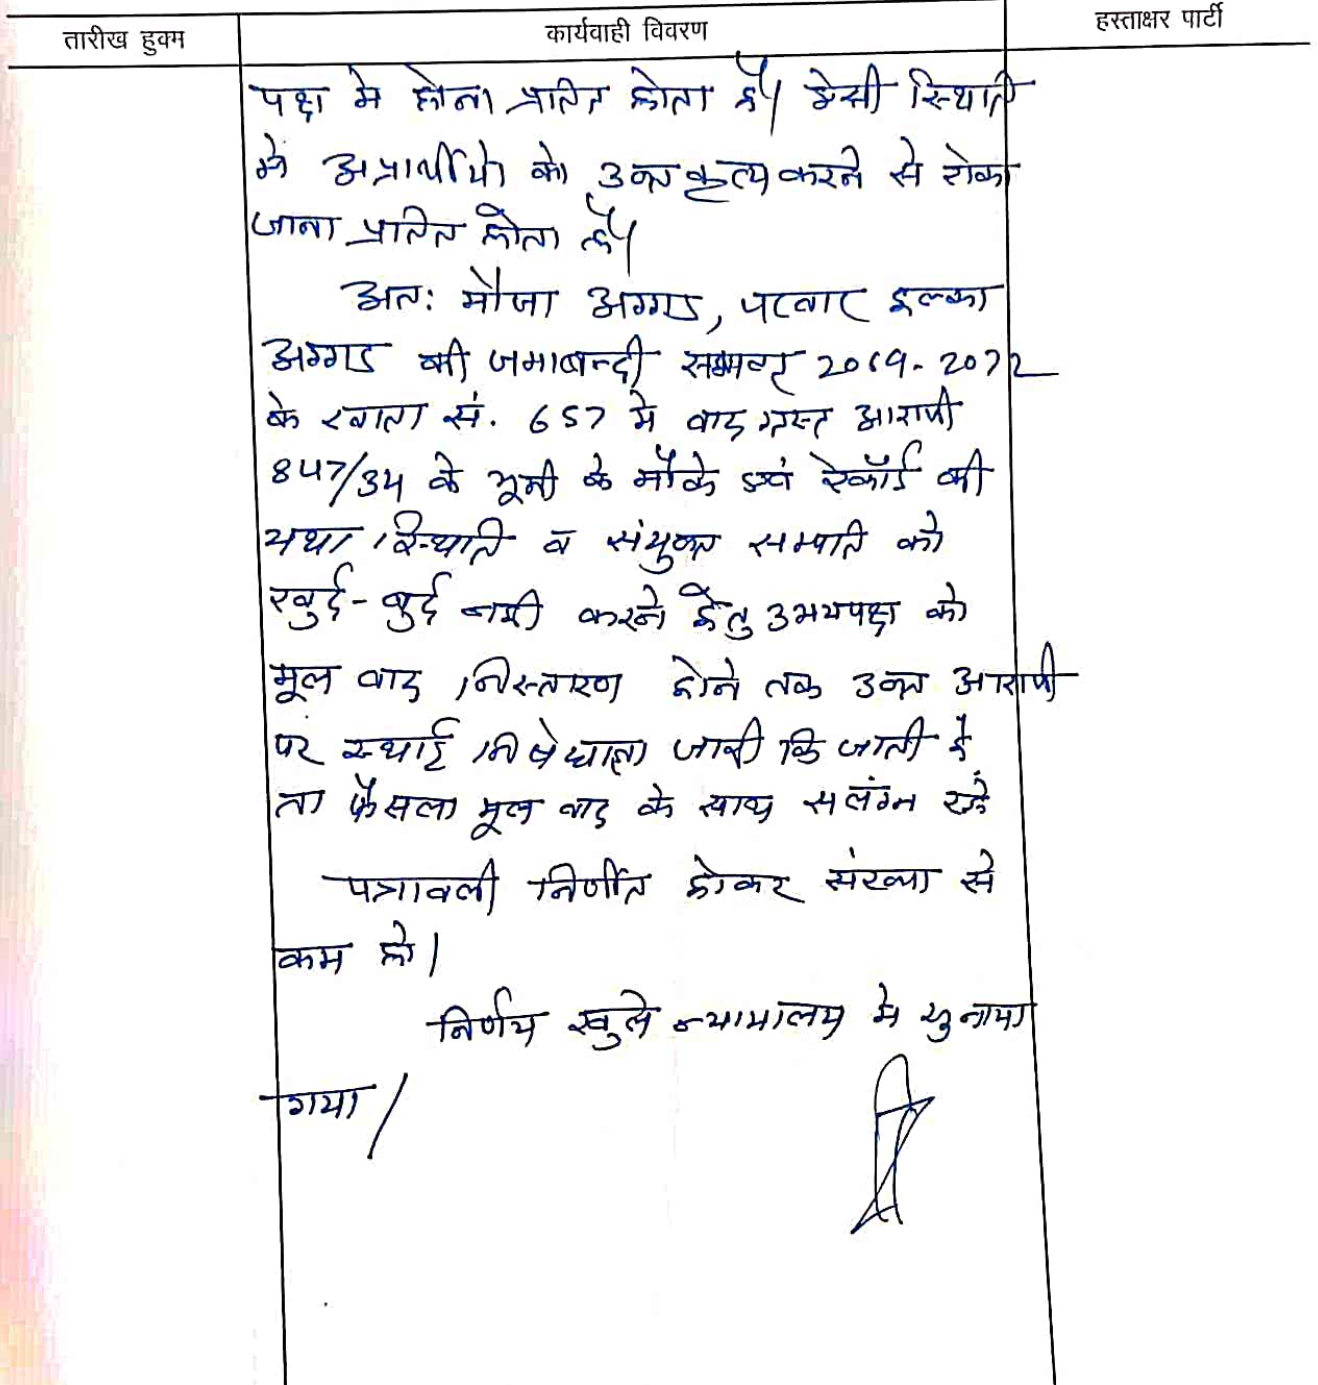 तारीख हुक्म कार्यवाही विवरण हस्ताक्षर पार्टी
पक्ष मे होना प्रतित होता है। ऐसी स्थिति
मे अप्रार्थीयो को उक्त कृत्य करने से रोका
जाना प्रतित होता है।
अतः मौजा अगगड, पटवार हल्का
अगगड की जमाबन्दी सम्मवत् 2069-2072
के खाता सं. 657 मे वाद ग्रस्त आराजी
847/34 के भूमी के मौके एवं रेकॉर्ड की
यथा स्थिति व संयुक्त सम्पति को
खुर्द-बुर्द नही करने हेतु उभयपक्ष को
मूल वाद निस्तारण होने तक उक्त आराजी
पर स्थाई निषेधाज्ञा जारी कि जाती है
ता फैसला मूल वाद के साथ सलंग्न रहे
पत्रावली निर्णीत होकर संख्या से
कम हो।
निर्णय खुले न्यायालय मे सुनाया
गया।